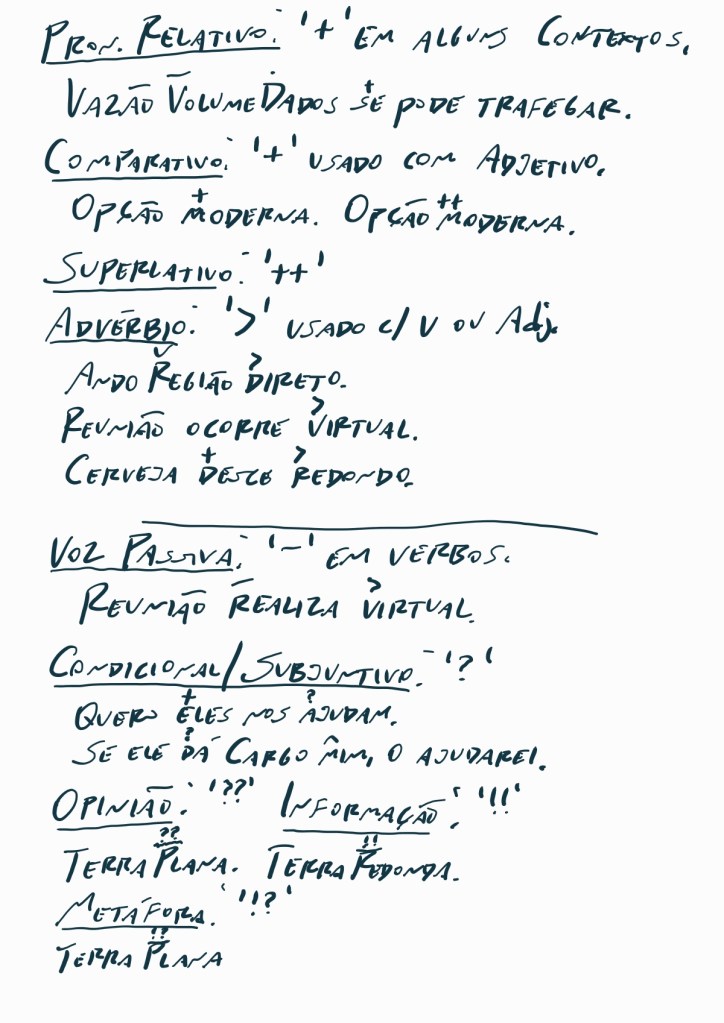 PRON. RELATIVO: '+' EM ALGUNS CONTEXTOS.
VAZÃO VOLUME DADOS SE PODE TRAFEGAR.
COMPARATIVO: '+' USADO COM ADJETIVO.
OPÇÃO + MODERNA. OPÇÃO ++ MODERNA.
SUPERLATIVO: '++'
ADVÉRBIO: '>' USADO C/ V OU Adj.
ANDO REGIÃO > DIRETO.
REUNIÃO OCORRE > VIRTUAL.
CERVEJA + DESCE > REDONDO.
VOZ PASSIVA: '-' EM VERBOS.
REUNIÃO REALIZA > VIRTUAL.
CONDICIONAL/SUBJUNTIVO: '?'
QUERO + ELES NOS ? AJUDAM.
SE ELE ? DÁ CARGO MIM, O AJUDAREI.
OPINIÃO: '??' INFORMAÇÃO: '!!'
TERRA ?? PLANA. TERRA !! REDONDA.
METÁFORA: '!?'
TERRA !? PLANA